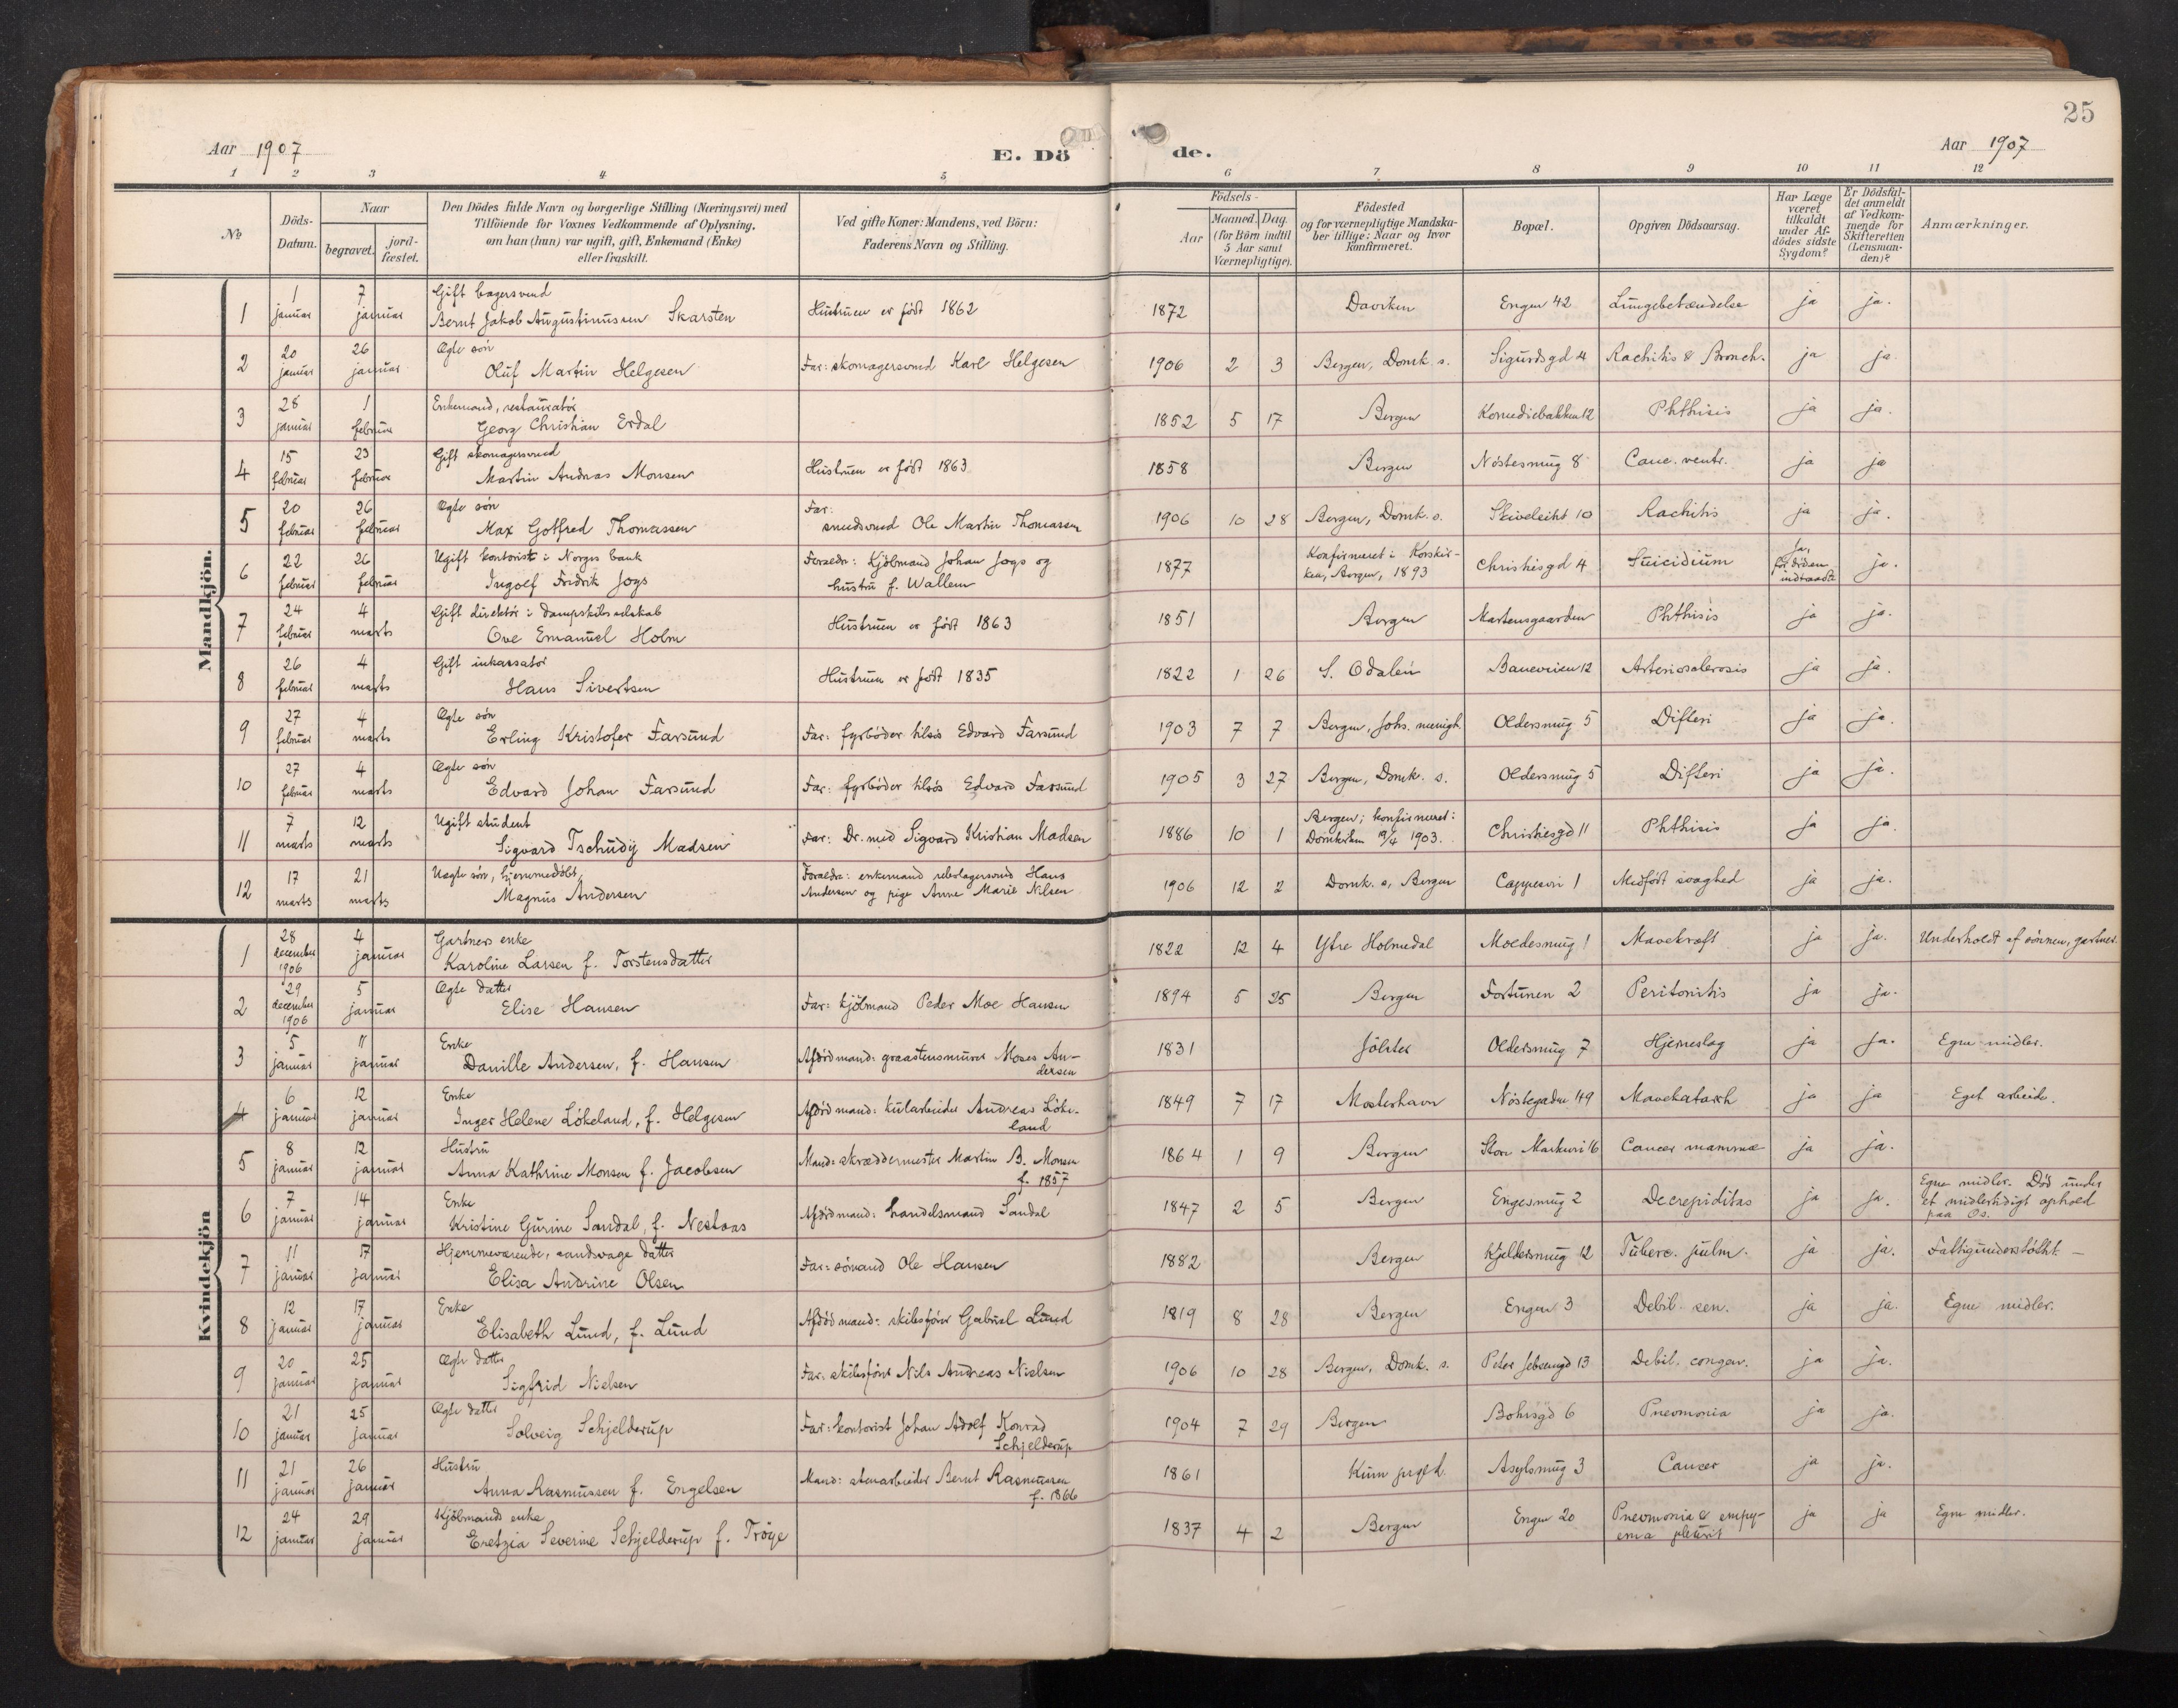 25
Aar 1907
E. Dö de.
Aar 1907
1 2 3 4 5 6 7 8 9 10 11 12
№
Döds-Datum.
Naar
begravet.
jord-fæstet.
Den Dödes fulde Navn og borgerlige Stilling (Næringsvei) med
Tilföiende for Voxnes Vedkommende af Oplysning,
om han (hun) var ugift, gift, Enkemand (Enke)
eller fraskilt.
Ved gifte Koner: Mandens, ved Börn:
Faderens Navn og Stilling.
Födsels-
Aar
Maaned. Dag.
(for Börn indtil
5 Aar samt
Værnepligtige).
Födested
og for værnepligtige Mandska-
ber tillige: Naar og hvor
konfirmeret.
Bopæl.
Opgiven Dödsaarsag.
Har Læge
været
tilkaldt
under Af-
dödes sidste
Sygdom?
Er Dödsfal-
det anmeldt
af Vedkom-
mende for
Skifteretten
(Lensman-
den)?
Anmærkninger.
Mandkjön.
1 1 januar 7 januar Gift bagersvend
Bernt Jakob Augustinussen Skarsten Hustruen er født 1862 1872 Daviken Engen 42 Lungebetændelse ja ja.
2 20 januar 26 januar Ægte søn
Oluf Martin Helgesen Far: skomagersvend Karl Helgesen 1906 2 3 Bergen, Domk. s. Sigurdsgd 4 Rachitis & Bronch. ja ja
3 28 januar 1 februar Enkemand, restauratør
Georg Christian Erdal 1852 5 17 Bergen Komediebakken 12 Phthisis ja ja.
4 15 februar 23 februar Gift skomagersvend
Martin Andreas Monsen Hustruen er født 1863 1858 Bergen Nøstesmug 8 Canc. ventr. ja ja
5 20 februar 26 februar Ægte søn
Max Gotfred Thomassen Far:
smedsvend Ole Martin Thomassen 1906 10 28 Bergen, Domk. s. Skiveleiht 10 Rachitis ja ja.
6 22 februar 26 februar Ugift kontorist i Norges bank
Ingolf Fredrik Jogs Foraeldr: Kjøbmand Johan Jogs og
hustru f. Wallem 1877 Konfirmeret i Korskir-
ken, Bergen, 1893 Christiesgd 4 Suicidium Ja, før døden indtraadte ja.
7 24 februar 4 marts Gift direktør i dampskibsselskab
Ove Emanuel Holm Hustruen er født 1863 1851 Bergen Martensgaarden Phthisis ja ja.
8 26 februar 4 marts Gift inkassator
Hans Sivertsen Hustruen er født 1835 1822 1 26 S. Odalen Baneveien 12 Arteriosclerosis ja ja.
9 27 februar 4 marts Ægte søn
Erling Kristofer Farsund Far: fyrbøder tilsøs Edvard Farsund 1903 7 7 Bergen, Johs. menigh. Oldersmug 5 Difteri ja ja.
10 27 februar 4 marts Ægte søn
Edvard Johan Farsund Far: fyrbøder tilsøs Edvard Farsund 1905 3 27 Bergen, Domk. s. Oldersmug 5 Difteri ja ja.
11 7 marts 12 marts Ugift student
Sigvard Tschudij Madsen Far: Dr. med Sigvard Kristian Madsen 1886 10 1 Bergen; konfirmeret:
Domkirken 19/4 1903. Christiesgd 11 Phthisis ja ja.
12 17 marts 21 marts Uægte søn, hjemmedøbt,
Magnus Andersen Foraeldre: enkemand rebslagersvend Hans
Andersen og pige Anne Marie Nilsen 1906 12 2 Domk. s, Bergen Cappesvi 1 Medfødt svaghed ja ja.
Kvindekjön
1 28 december 1906 4 januar Gartners enke
Karoline Larsen f. Torstensdatter 1822 12 4 Ytre Holmedal Moldesmug 1 Mavekræft ja ja. Underholdt af sønnen, gartner.
2 29 december 1906 5 januar Ægte datter
Elise Hansen Far: kjøbmand Peder Moe Hansen 1894 5 25 Bergen Fortunen 2 Peritonitis ja ja.
3 5 januar 11 januar Enke
Danille Andersen, f. Hansen Afdød mand: graastensmurer Moses An-
dersen 1831 Jølster Oldersmug 7 Hjerneslag ja ja. Egne midler.
4 6 januar 12 januar Enke
Inger Helene Løkeland, f. Helgesen Afdød mand: kularbeider Andreas Løke-
land 1849 7 17 Mosterhavn Nøstegaden 49 Mavekatarrh ja ja Eget arbeide.
5 8 januar 12 januar Hustru
Anna Kathrine Monsen f. Jacobsen Mand: skræddermester Martin B. Monsen
f. 1857 1864 1 9 Bergen Store Markeveien 16 Cancer mammæ ja ja.
6 7 januar 14 januar Enke
Kristine Gurine Sandal, f. Nestaas Afdød mand: handelsmand Sandal 1847 2 5 Bergen Engesmug 2 Decrepiditas ja ja. Egne midler. Død under
et midlertidigt ophold
paa Os.
7 11 januar 17 januar Hjemmeværende, aandsvage datter
Elisa Andrine Olsen Far: sømand Ole Hansen 1882 Bergen Kjeldersmug 12 Tuberc. pulm. ja ja. Fattigunderstøttt. —
8 12 januar 17 januar Enke
Elisabeth Lund, f. Lund Afdød mand: skibsfører Gabriel Lund 1819 8 28 Bergen Engen 3 Debil. sen. ja ja. Egne midler.
9 20 januar 25 januar Ægte datter
Sigfrid Nielsen Far: skibsfører Nils Andreas Nielsen 1906 10 28 Bergen, Domk. s. Peter Jebsensgd 13 Debil. congen. ja ja.
10 21 januar 25 januar Ægte datter
Solveig Schjelderup Far: kontorist Johan Adolf Konrad
Schjelderup 1904 7 29 Bergen Bohrsgd 6 Pneomonia ja ja.
11 21 januar 26 januar Hustru
Anna Rasmussen f. Engelsen Mand: stenarbeider Bernt Rasmussen
f. 1866 1861 Kinn prgd. Asylsmug 3 Cancer ja ja.
12 24 januar 29 januar Kjøbmands enke
Eretzia Severine Schjelderup f. Trøye 1837 4 2 Bergen Engen 20 Pneomonia & empy-
ema pleurit ja ja Egne midler.